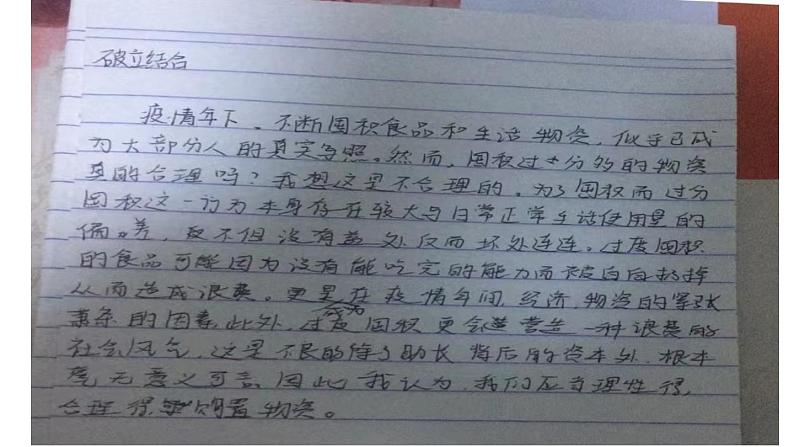 破立结合
疫情年下，不断囤积食品和生活物资，似乎已成
为大部分人的真实写照。然而，囤积过十分多的物资
真的合理吗？我想这是不合理的。为了囤积而过分
囤积这一行为本身存在较大与日常正常生活使用量的
偏差，反不但没有益处反而坏处连连。过度囤积
的食品可能因为没有能吃完的能力而被白白扔掉
从而造成浪费。更是在疫情年间，经济，物资的紧张
萧条的因素，此外，过度囤积更会 成为 营生一种浪费的
社会风气，这是不良的除了助长背后的资本外，根本
毫无意义可言。因此我认为，我们应当理性得，
合理得 购置物资。